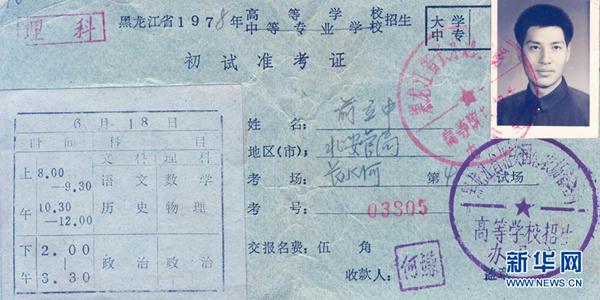 理科
黑龙江省1978年高等学校
中等专业学校招生
大学
中专
初试准考证
6月18日
时间 科目
文科 理科
上午 8.00—9.30 语文 数学
10.30—12.00 历史 物理
下午 2.00—3.30 政治 政治
姓名：
地区(市)：北安管局
考场： 第4试场
考号：03805
交报名费：伍角
收款人：
高等学校招生
新华网
WWW.NEWS.CN